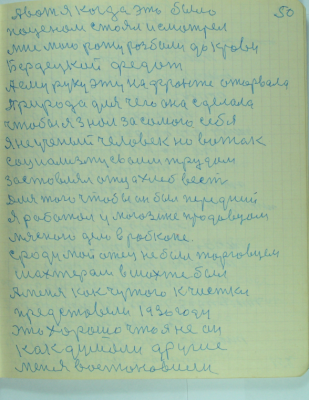 50
Авот я когда это было
пацаном стоял и смотрел
мне мою рожу розбили до крови
Бердецкой Федот
Аему руку эту на фронте оторвала
Природа для чего она сделала
чтобы я знал за самого себя
Я не учений человек но вот как
социализму своим трудом
заставлял отца хлеб вест
для того чтобы он был передний
Я работал у магазине продавцом
мясного дело в рабкопе.
сроду мой отец не был торговцем
шахтером в шахте был
Аменя как чужого к чистки
представили 1930 году
Это хорошо что я не он
как думали другие
меня востоновили